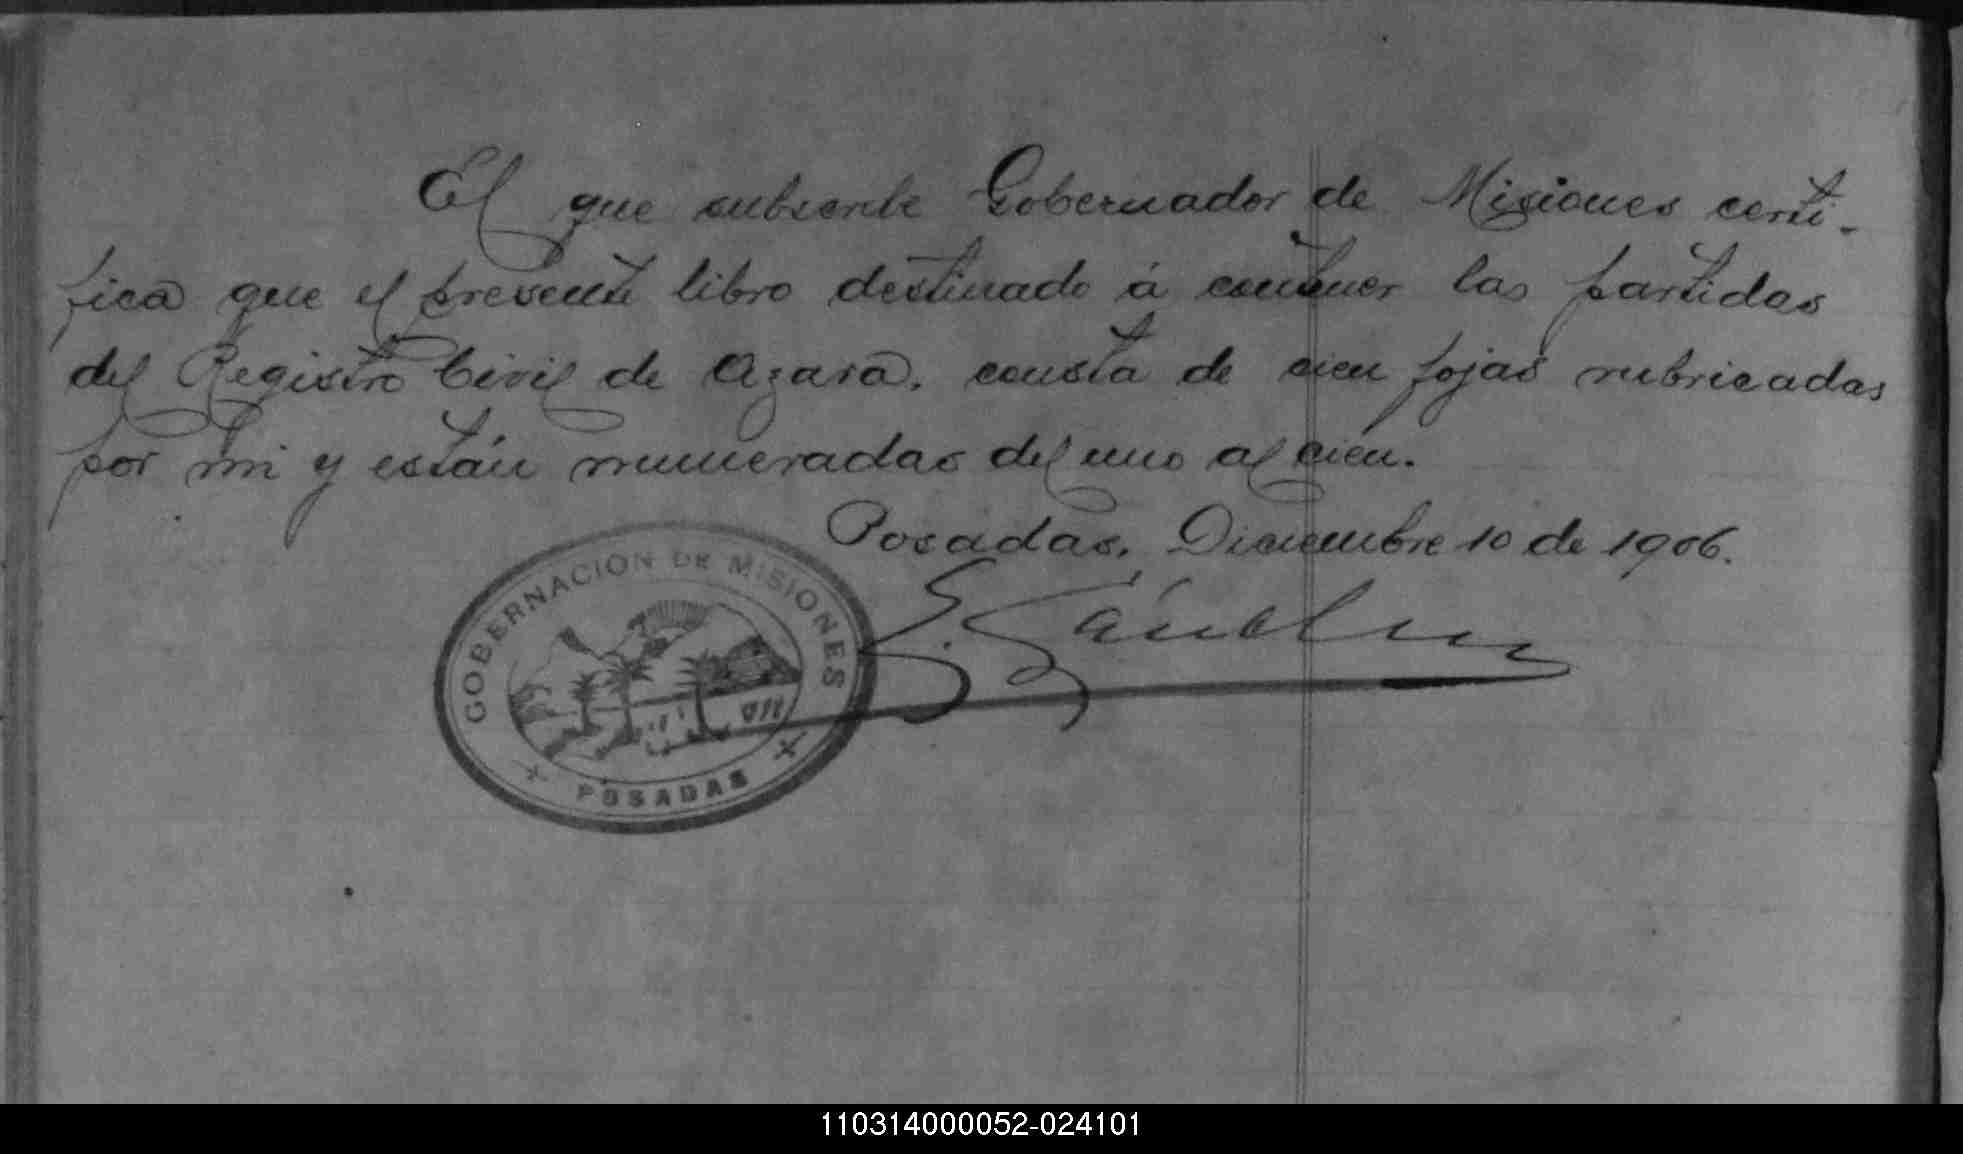 El que subscribe Gobernador de Misiones certi-
fica que el presente libro destinado á contener las partidas
del Registro Civil de Azara, consta de cien fojas rubricadas
por mi y están numeradas del uno al cien.
Posadas, Diciembre 10 de 1906.
GOBERNACION DE MISIONES
POSADAS
110314000052-024101